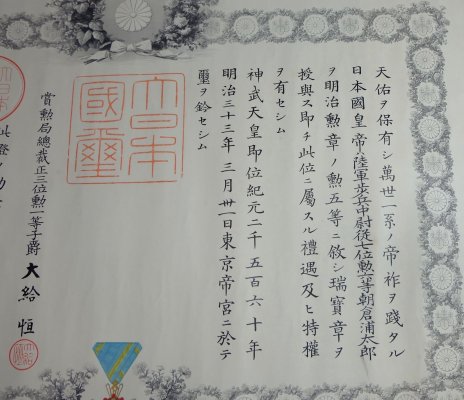 天佑ヲ保有シ萬世一系ノ帝祚ヲ踐タル
日本國皇帝ハ陸軍歩兵中尉從七位勲六等朝倉浦太郎
ヲ明治勲章ノ勲五等ニ敘シ瑞寶章ヲ
授與ス即チ此位ニ屬スル禮遇及ヒ特權
ヲ有セシム
神武天皇即位紀元二千五百六十年
明治三十三年三月卅一日東京帝宮ニ於テ
璽ヲ鈐セシム
大日本國璽
賞勲局總裁正三位勲一等子爵大給恒
此證ヲ勲